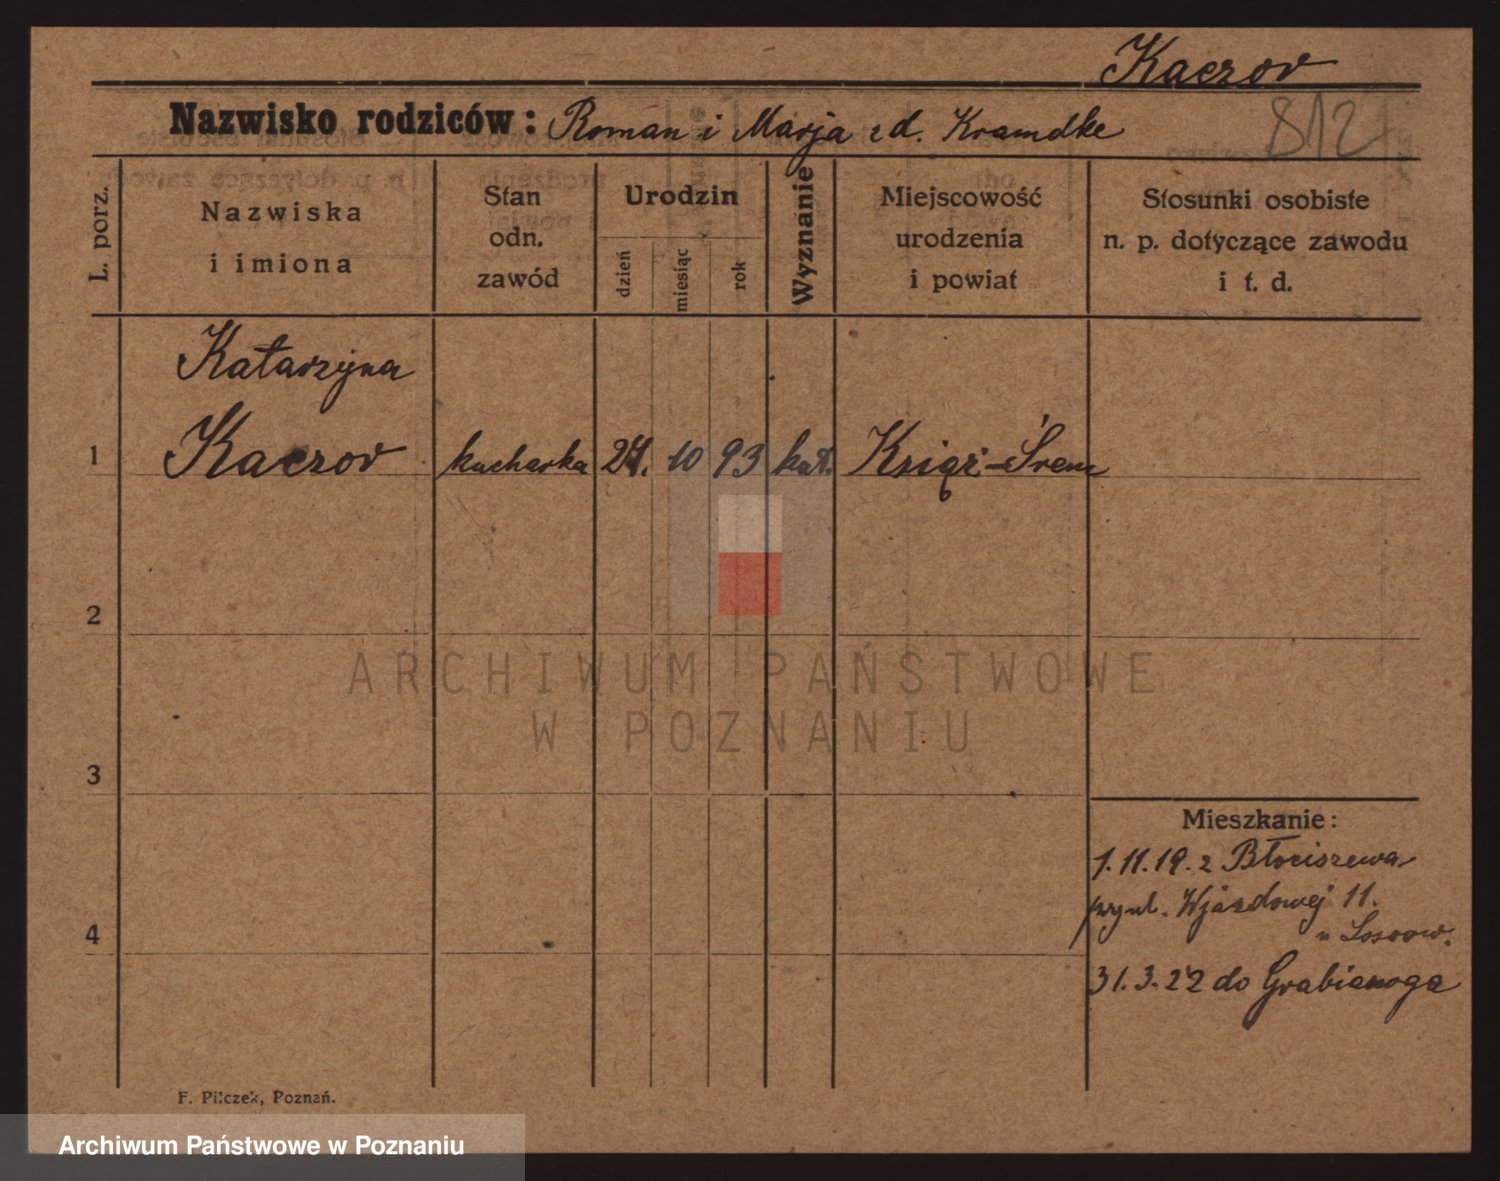 Kaczor
Nazwisko rodziców: Roman i Marja zd. Kramdke
812
L. porz.
Nazwiska
i imiona
Stan
odn.
zawód
Urodzin
dzień
miesiąc
rok
Wyznanie
Miejscowość
urodzenia
i powiat
Stosunki osobiste
n. p. dotyczące zawodu
i t. d.
Katarzyna
1 Kaczor kucharka 24. 10 93 kat. Książ-Śrem
2
ARCHIWUM PAŃSTWOWE
W POZNANIU
3
Mieszkanie:
1.11.19. z Błociszewa
Wjazdowej 11.
4
u
31.3.22 do Grabianoga
F. Pilczek, Poznań.
Archiwum Państwowe w Poznaniu